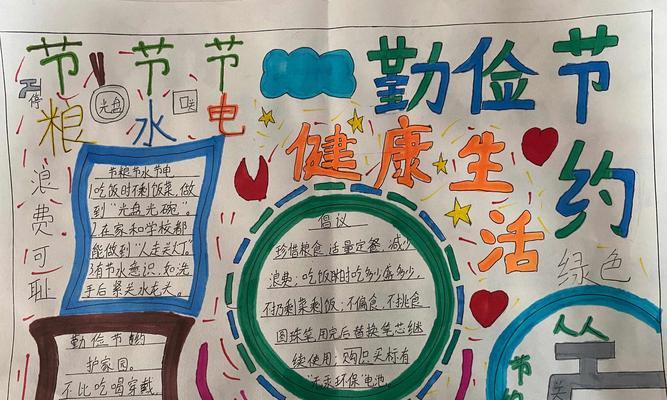 节粮 节水 节电
勤俭节约
健康生活
停
光盘
关
浪费可耻
节粮节水节电
吃饭时不剩饭菜,做
到“光盘光碗”。
2.在家和学校都
能做到“人走关灯”。
3.有节水意识,如洗
手后紧关水龙头。
倡议
珍惜粮食,适量定餐,减少
浪费;吃饭时吃多少盛多少,
不扔剩菜剩饭;不偏食,不挑食
圆珠笔用完后替换笔芯继
续使用;购识买标有
“无汞环保”电池
勤俭节约
护家园。
不比吃喝穿戴,
绿色
人人
节约
关